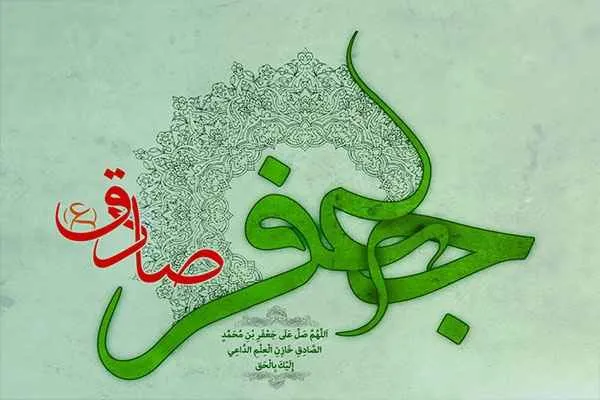 جعفر
صادق
(ع)
اَللّهُمَّ صَلِّ عَلَى جَعْفَرِ بْنِ مُحَمَّدٍ
الصَّادِقِ خَازِنِ الْعِلْمِ الدَّاعِي
إِلَيْكَ بِالْحَقِ